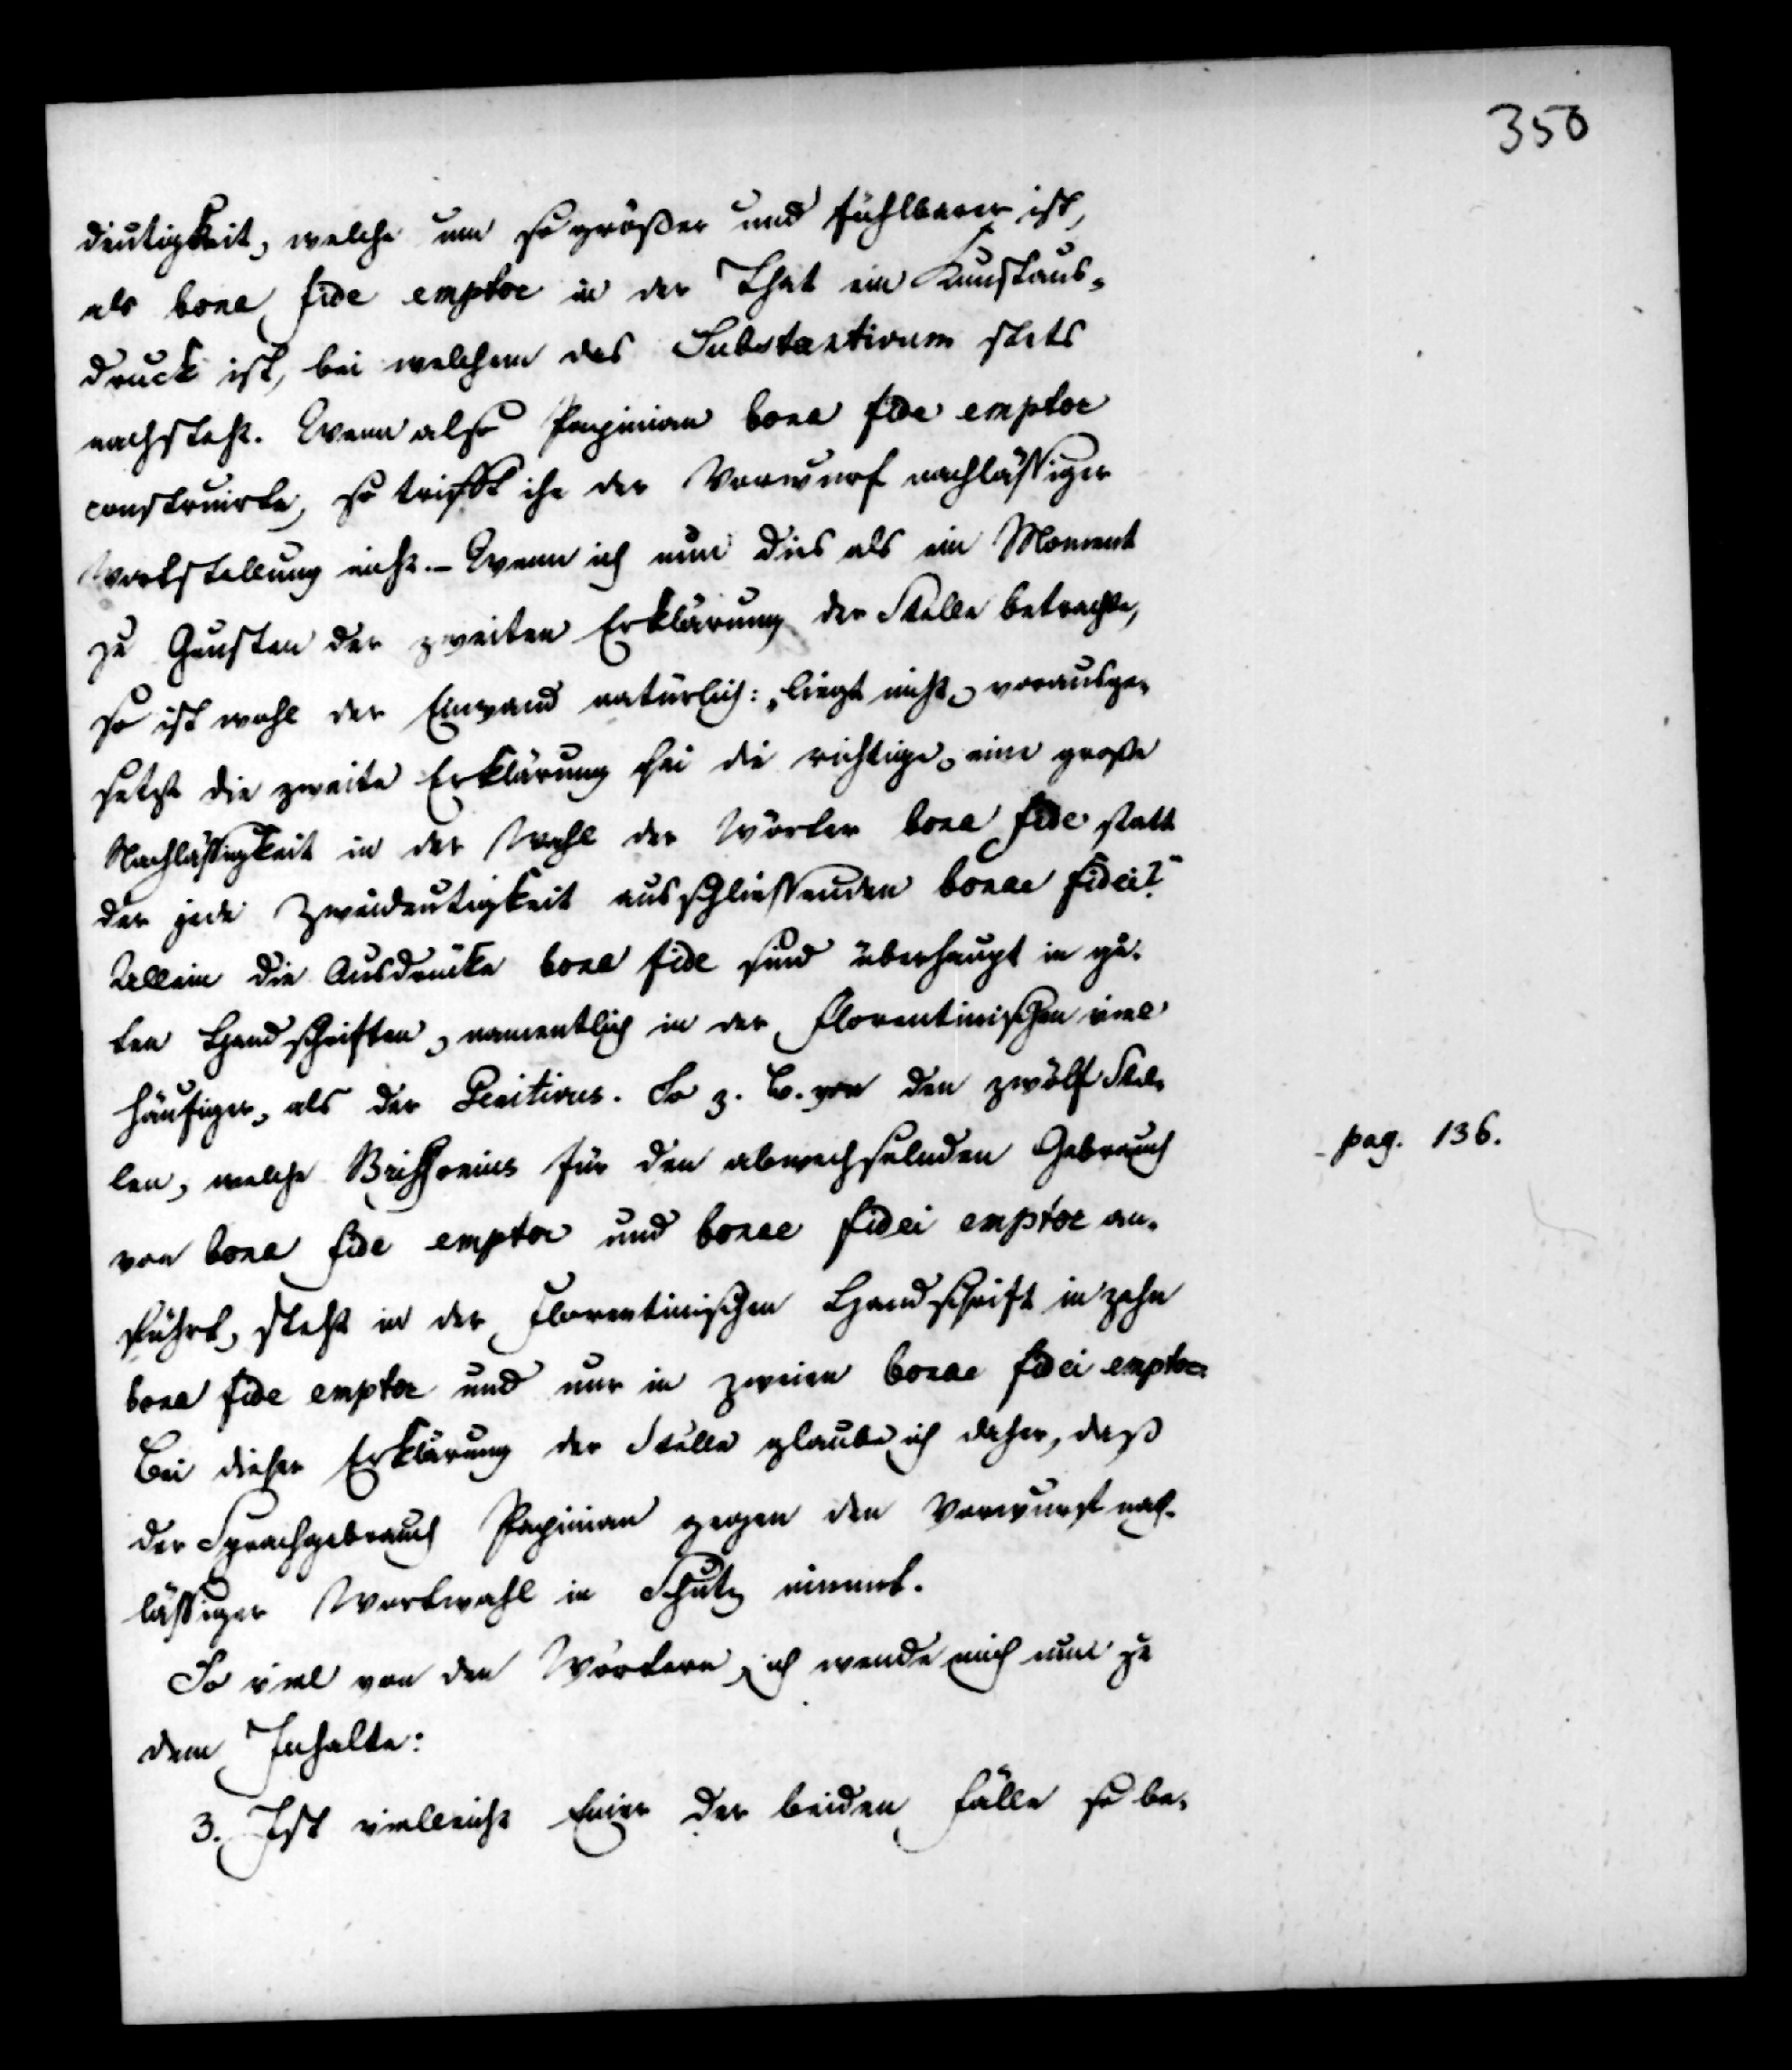 350
deutigkeit, welche um so größer und fühlbarer ist,
als bona fide emptor in der That ein Kunstaus-
druck ist, bei welchem das Substantivum stets
nachsteht. Wenn also Papinian bona fide emptor
construirte, so trifft ihn der Vorwurf nachlässiger
Wortstellung nicht. – Wenn ich nun dies als ein Moment
zu Gunsten der zweiten Erklärung der Stelle betrachte,
so ist wohl der Einwand natürlich: „liegt nicht, vorausge-
setzt die zweite Erklärung sei die richtige, eine große
Nachlässigkeit in der Wahl der Wörter bona fide statt
der jede Zweideutigkeit ausschliessenden bonae fidei?"
Allein die Ausdrücke bona fide sind überhaupt in gu-
ten Handschriften, namentlich in der Florentinischen viel
häufiger, als der Genitivus. So z. B. von den zwölf Stel-
len, welche Brissonius für den abwechselnden Gebrauch
pag. 136.
von bona fide emptor und bonae fidei emptor an-
führt, steht in der Florentinischen Handschrift in zehn
bona fide emptor und nur in zweien bonae fidei emptor.
Bei dieser Erklärung der Stelle glaube ich daher, daß
der Sprachgebrauch Papinian gegen den Vorwurf nach-
lässiger Wortwahl in Schutz nimmt.
So viel von den Wörtern, ich wende mich nun zu
dem Inhalte:
3. Ist vielleicht Einer der beiden Fälle so be-